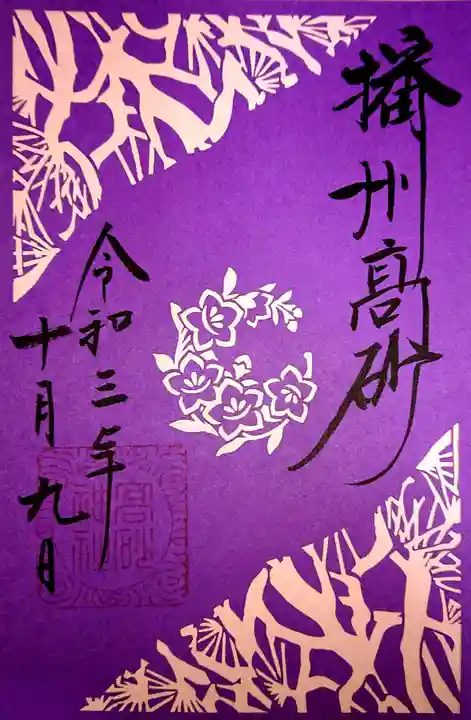 播州高砂
令和三年
十月九日
高砂
神社